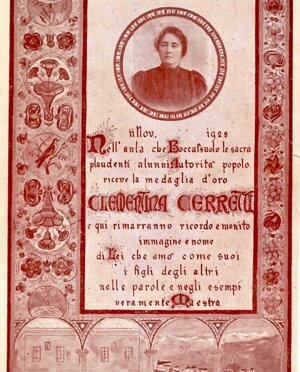 11 Nov. 1928
Nell'aula che Boccassuolo le sacra
plaudenti alunni Autorità popolo
riceve la medaglia d'oro
CLEMENTINA CERRETI
e qui rimarranno ricordo e monito
immagine e nome
di Lei che amo' come suoi
i figli degli altri
nelle parole e negli esempi
veramente Maestra